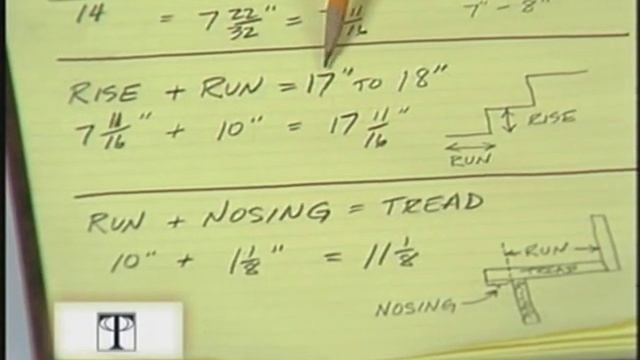 14
7 22/32" =
11/16
7" - 8"
RISE + RUN = 17" TO 18"
7 11/16" + 10" = 17 11/16"
RISE
RUN
RUN + NOSING = TREAD
10" + 1 1/8" = 11 1/8
RUN
TREAD
NOSING